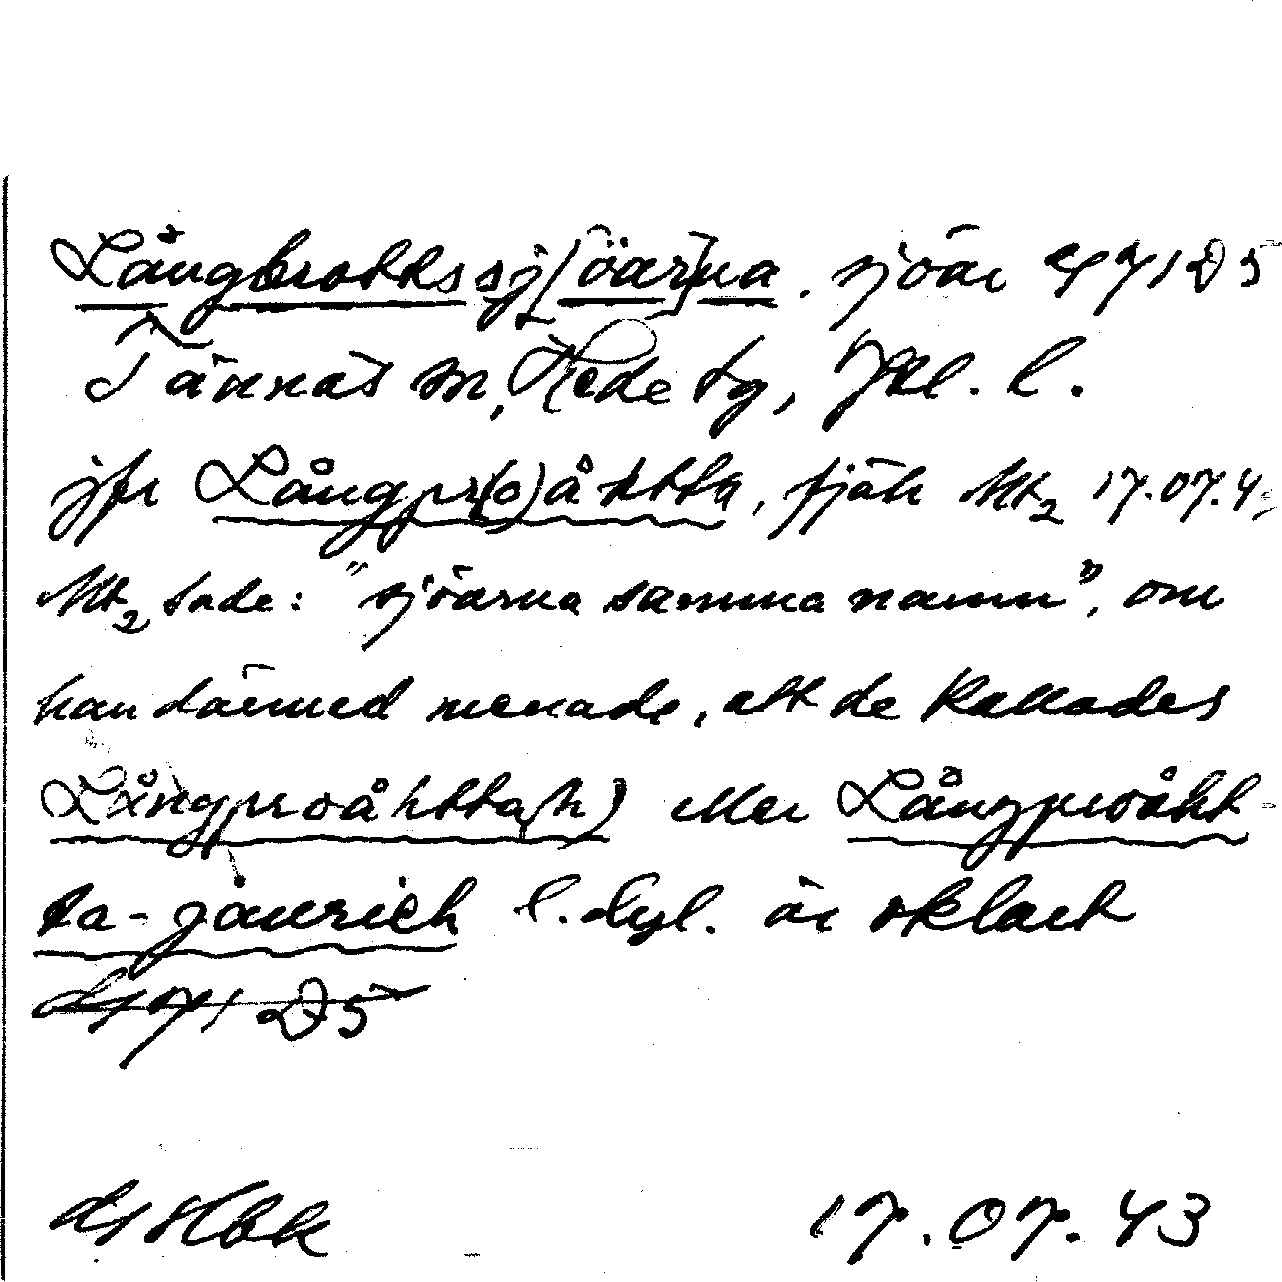 Långbrottssj[öar]na. sjöar 471 D5
Tännäs sn, Hede tg, Jtl. l.
jfr Långpr(o)åhtta, fjäll Mt2 17.07.4
Mt2 sade: "sjöarna samma namn", om
han därmed menade, att de kallades
Långproåhtta(h) eller Långproåht-
ta-jaurieh l. dyl. är oklart
471 D5
17.07.43